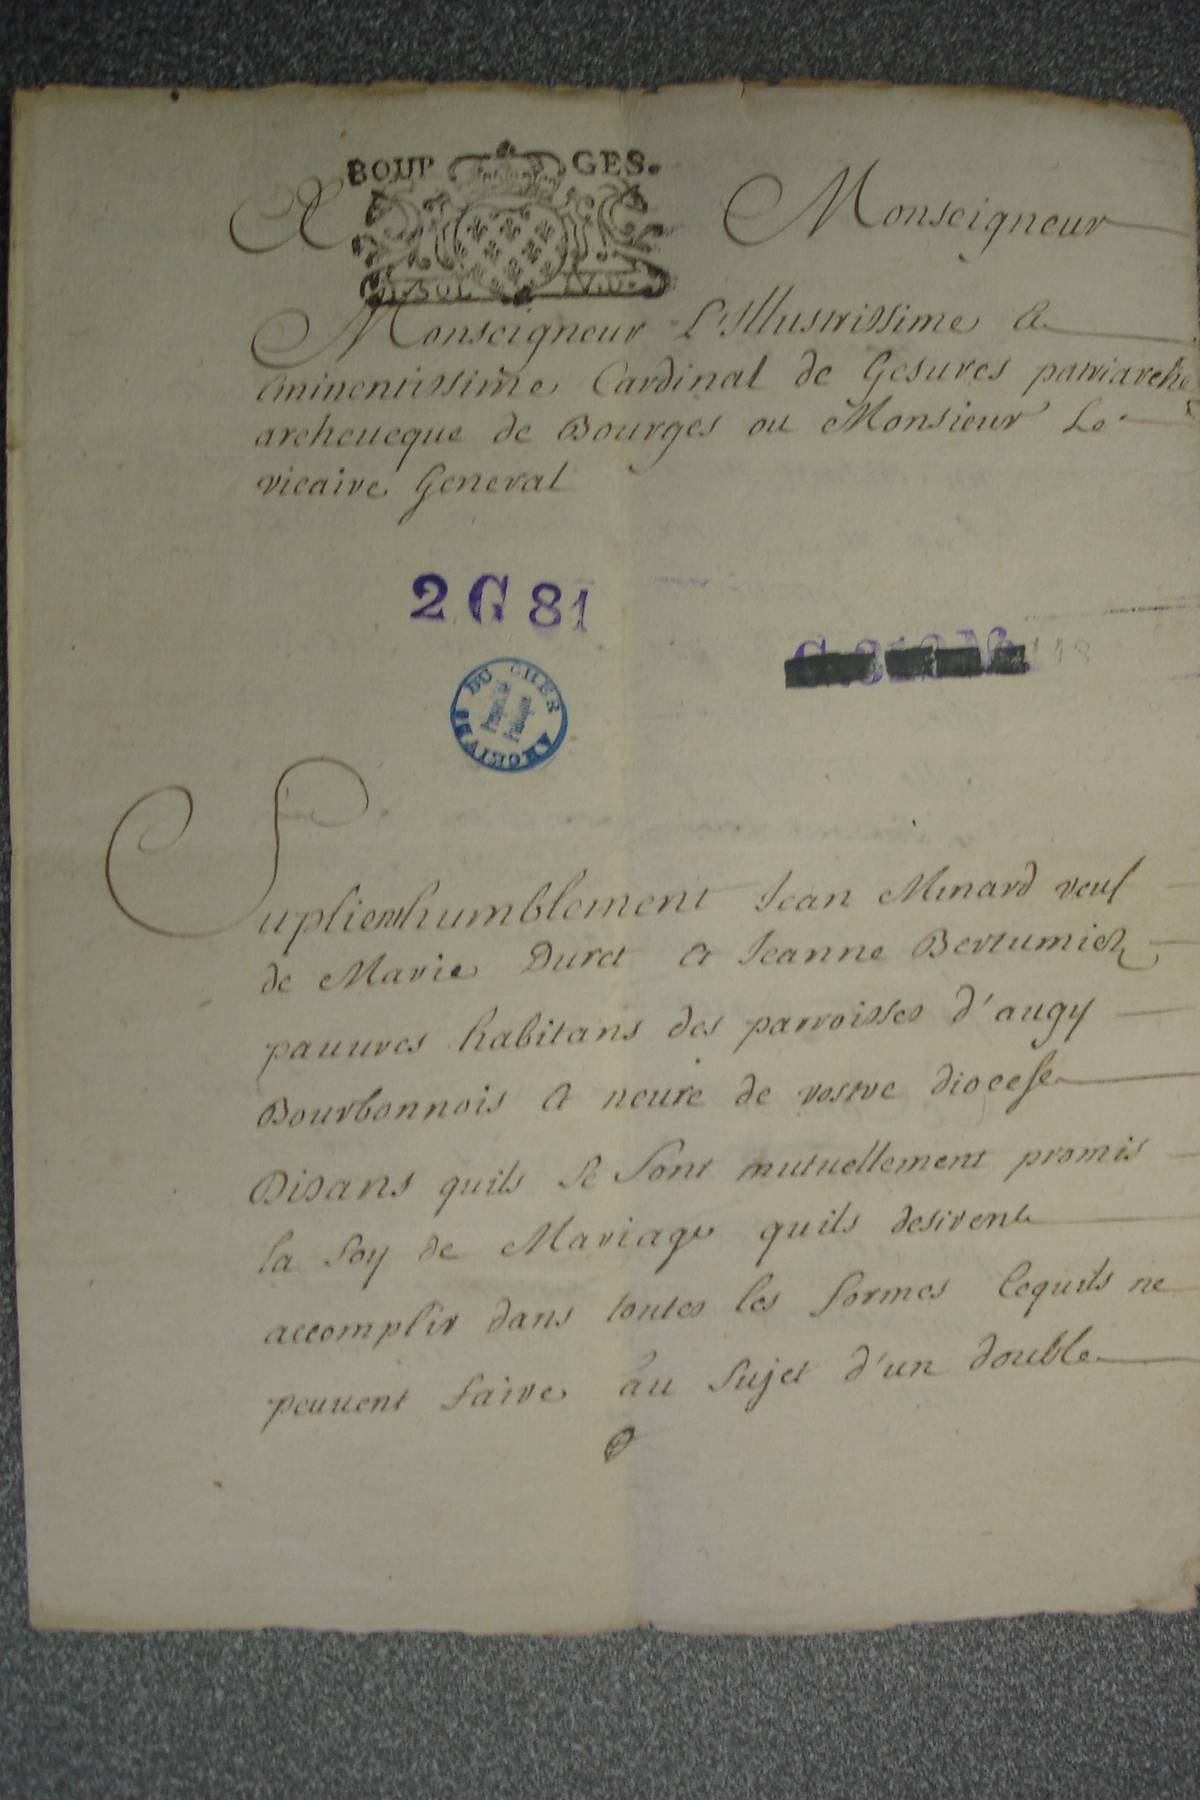 BOURGES.
A Monseigneur
SOL IV.D.
Monseigneur L'Illustrissime &
Eminentissime Cardinal de Gesvres patriarche
archeueque de Bourges ou Monsieur Le
vicaire General
2 G 81
118
ARCHIVES DU CHER
Propriété Publique
Suplient humblement Jean Minard veuf
de Marie Duret & Jeanne Bertumier
pauures habitans des parroisses d'augy
Bourbonnois & neure de vostre diocese
Disans quils se sont mutuellement promis
la foy de Mariage quils desirent
accomplir dans toutes les formes cequils ne
peuuent faire au sujet d'un double